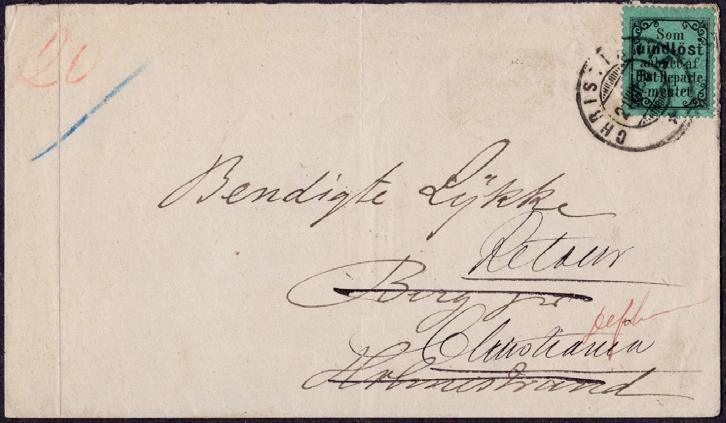 20
Som
uindlöst
aabnet af
Post-Departe
-mentet
CHRISTI
2
Bendigte Lykke
Retour
Berg pr
Christiania
Holmestrand